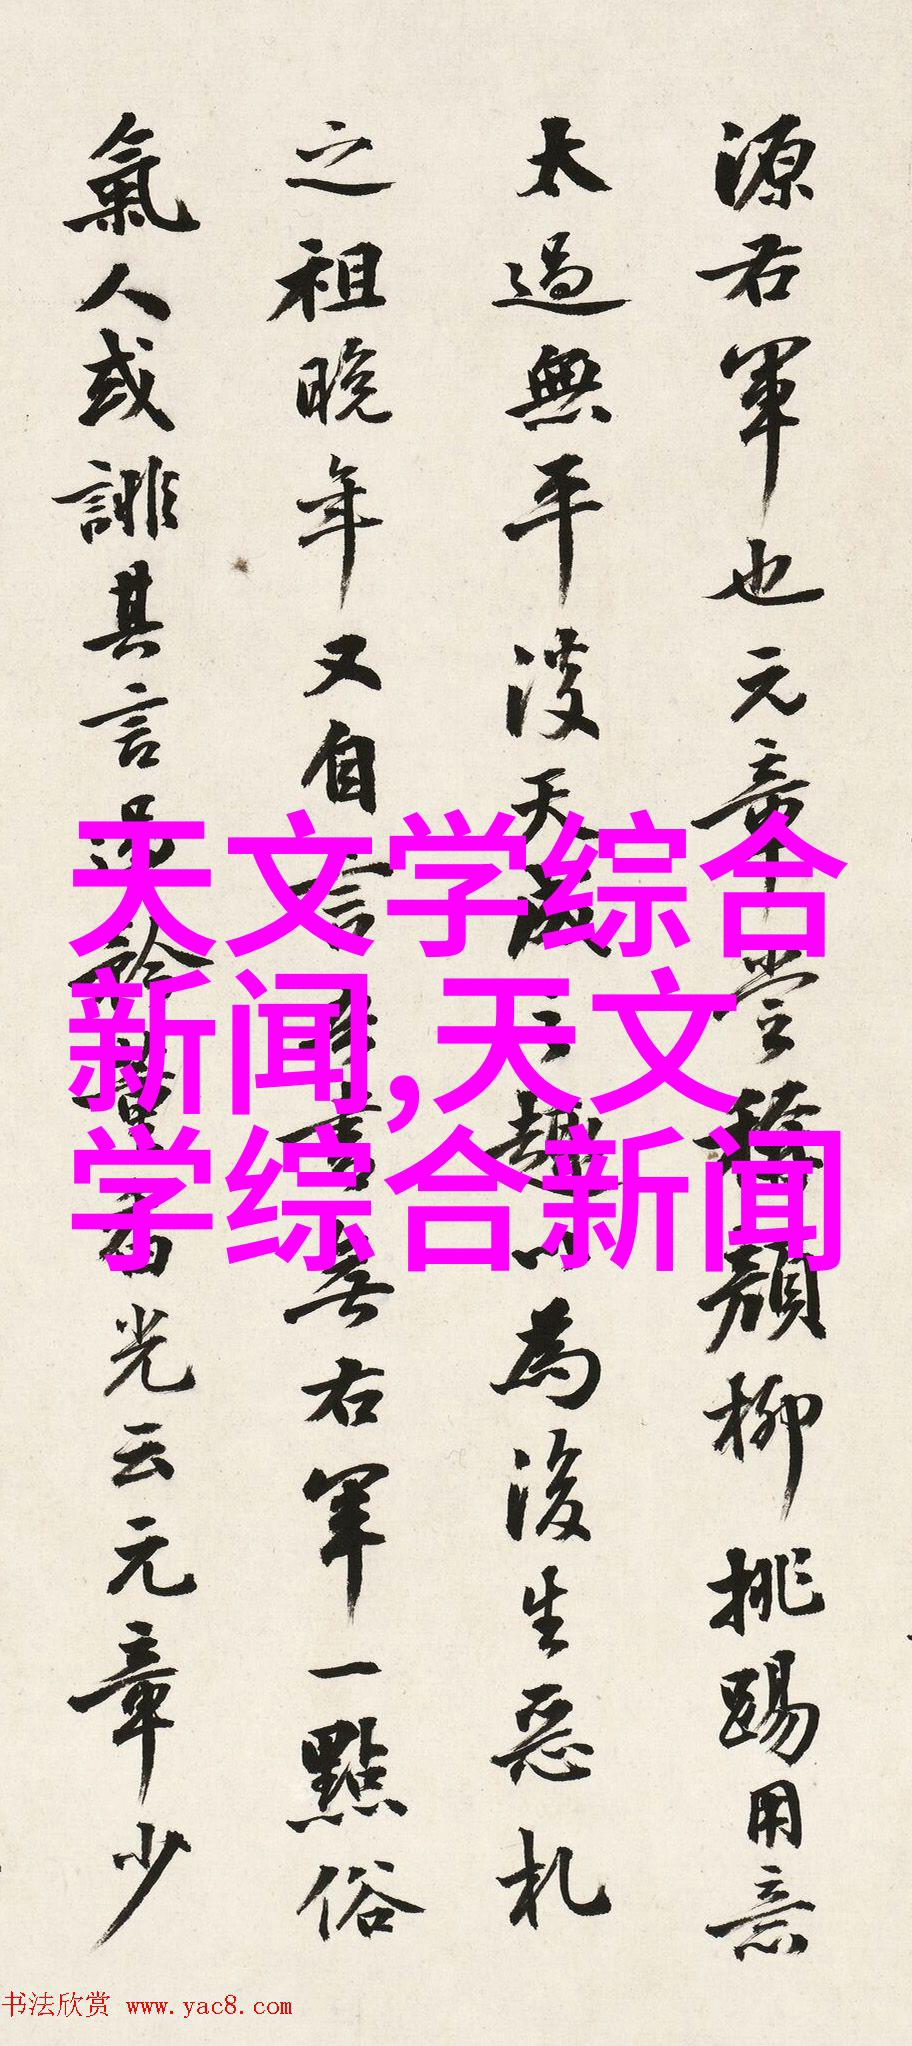 源右軍也元章嘗稱顏柳挑踢用意
太過無平淡天成之趣以為後生惡札
之祖晚年又自言其書無右軍一點俗
氣人或誹其言過於誓右光云元章少
天文学综合
新闻,天文
学综合新闻
书法欣赏 www.yac8.com